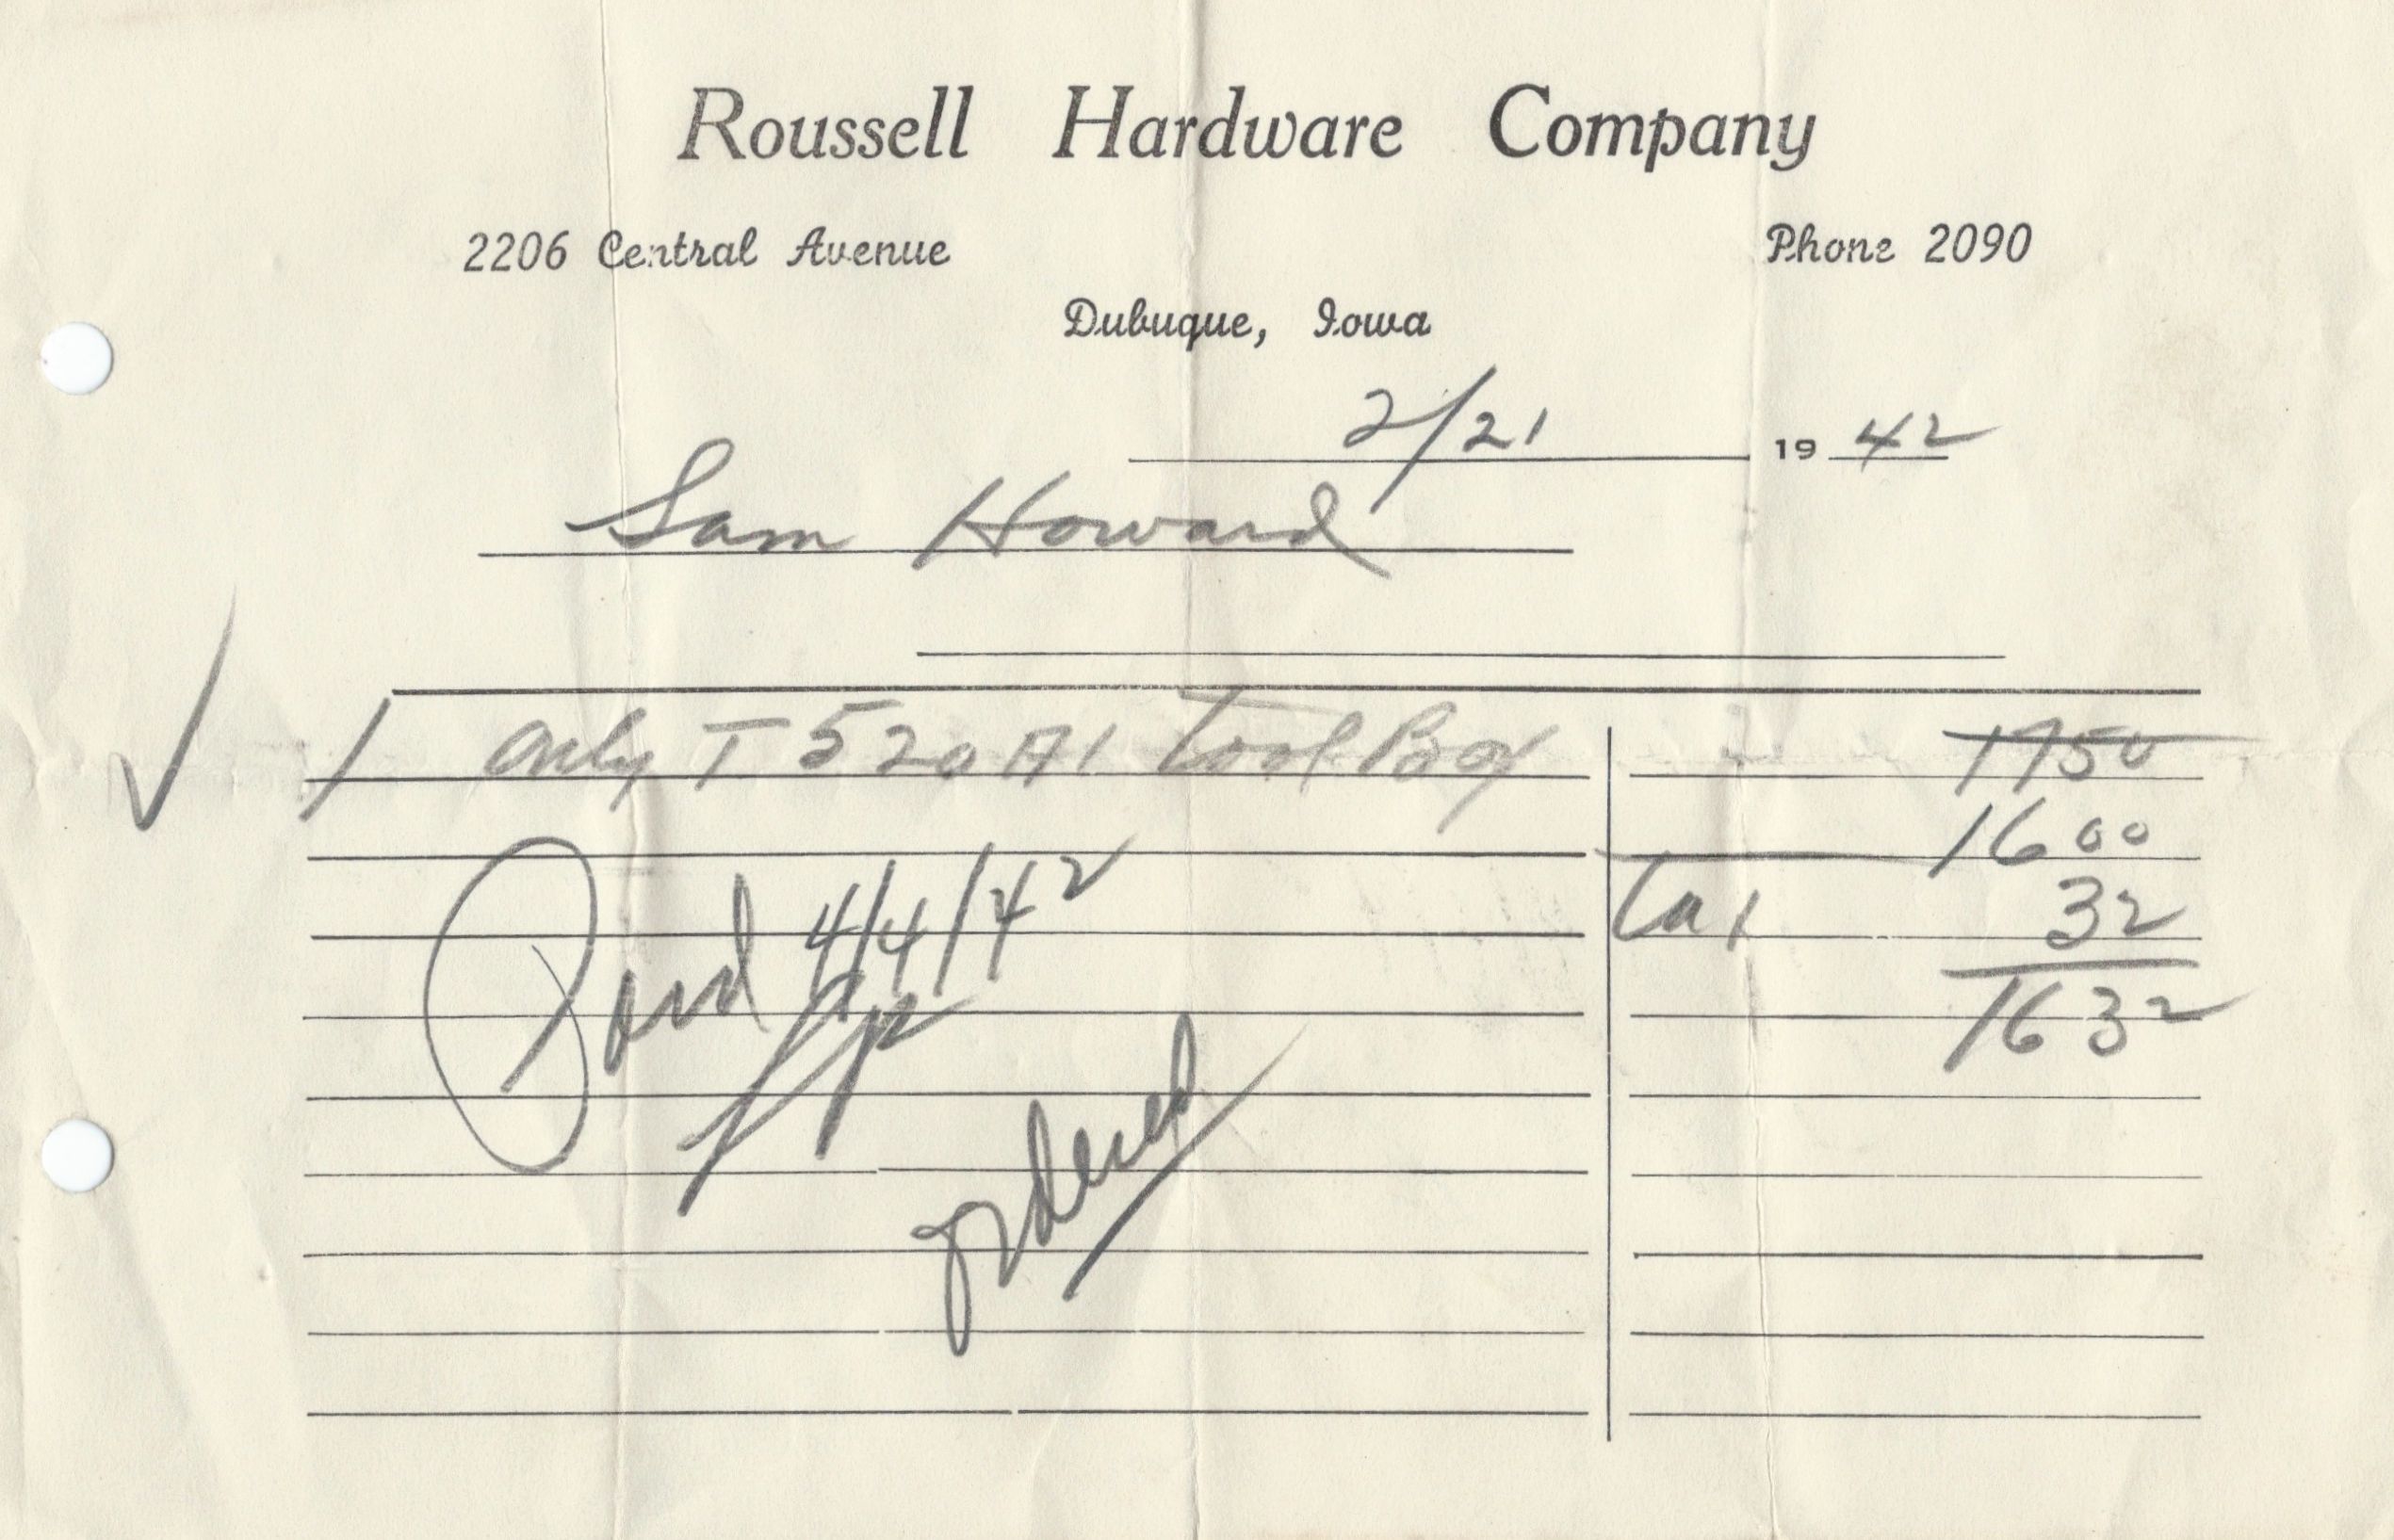 Roussell Hardware Company
2206 Central Avenue Phone 2090
Dubuque, Iowa
2/21 19 42
Sam Howard
1 only T 520 A1 Tool Box 1950
1600
Tax 32
Paid 4/4/42 1632
ordered